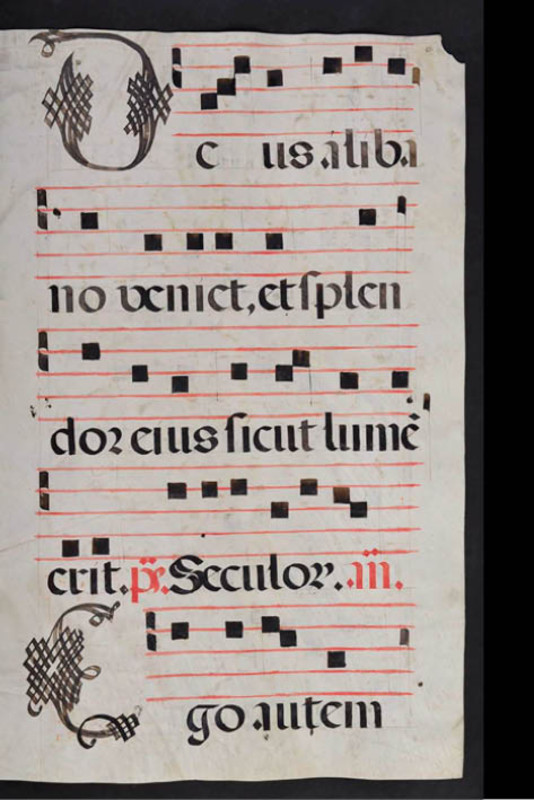 Deus aliba
no veniet, et ſplen
dor eius ſicut lumē
erit. ps. Seculor. añ.
Ego autem